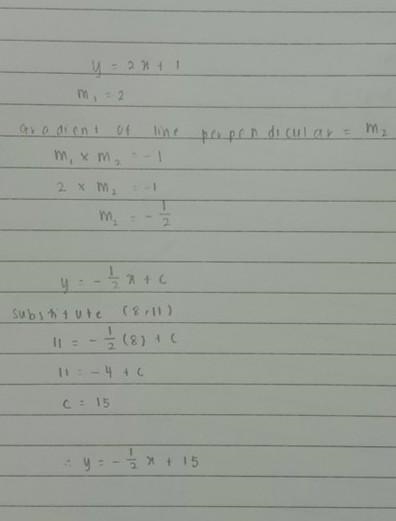 y = 2x + 1
m₁ = 2
Gradient of line perpendicular = m₂
m₁ × m₂ = -1
2 × m₂ = -1
m₂ = -1/2
y = -1/2 x + c
substitute (8,11)
11 = -1/2 (8) + c
11 = -4 + c
c = 15
∴ y = -1/2 x + 15